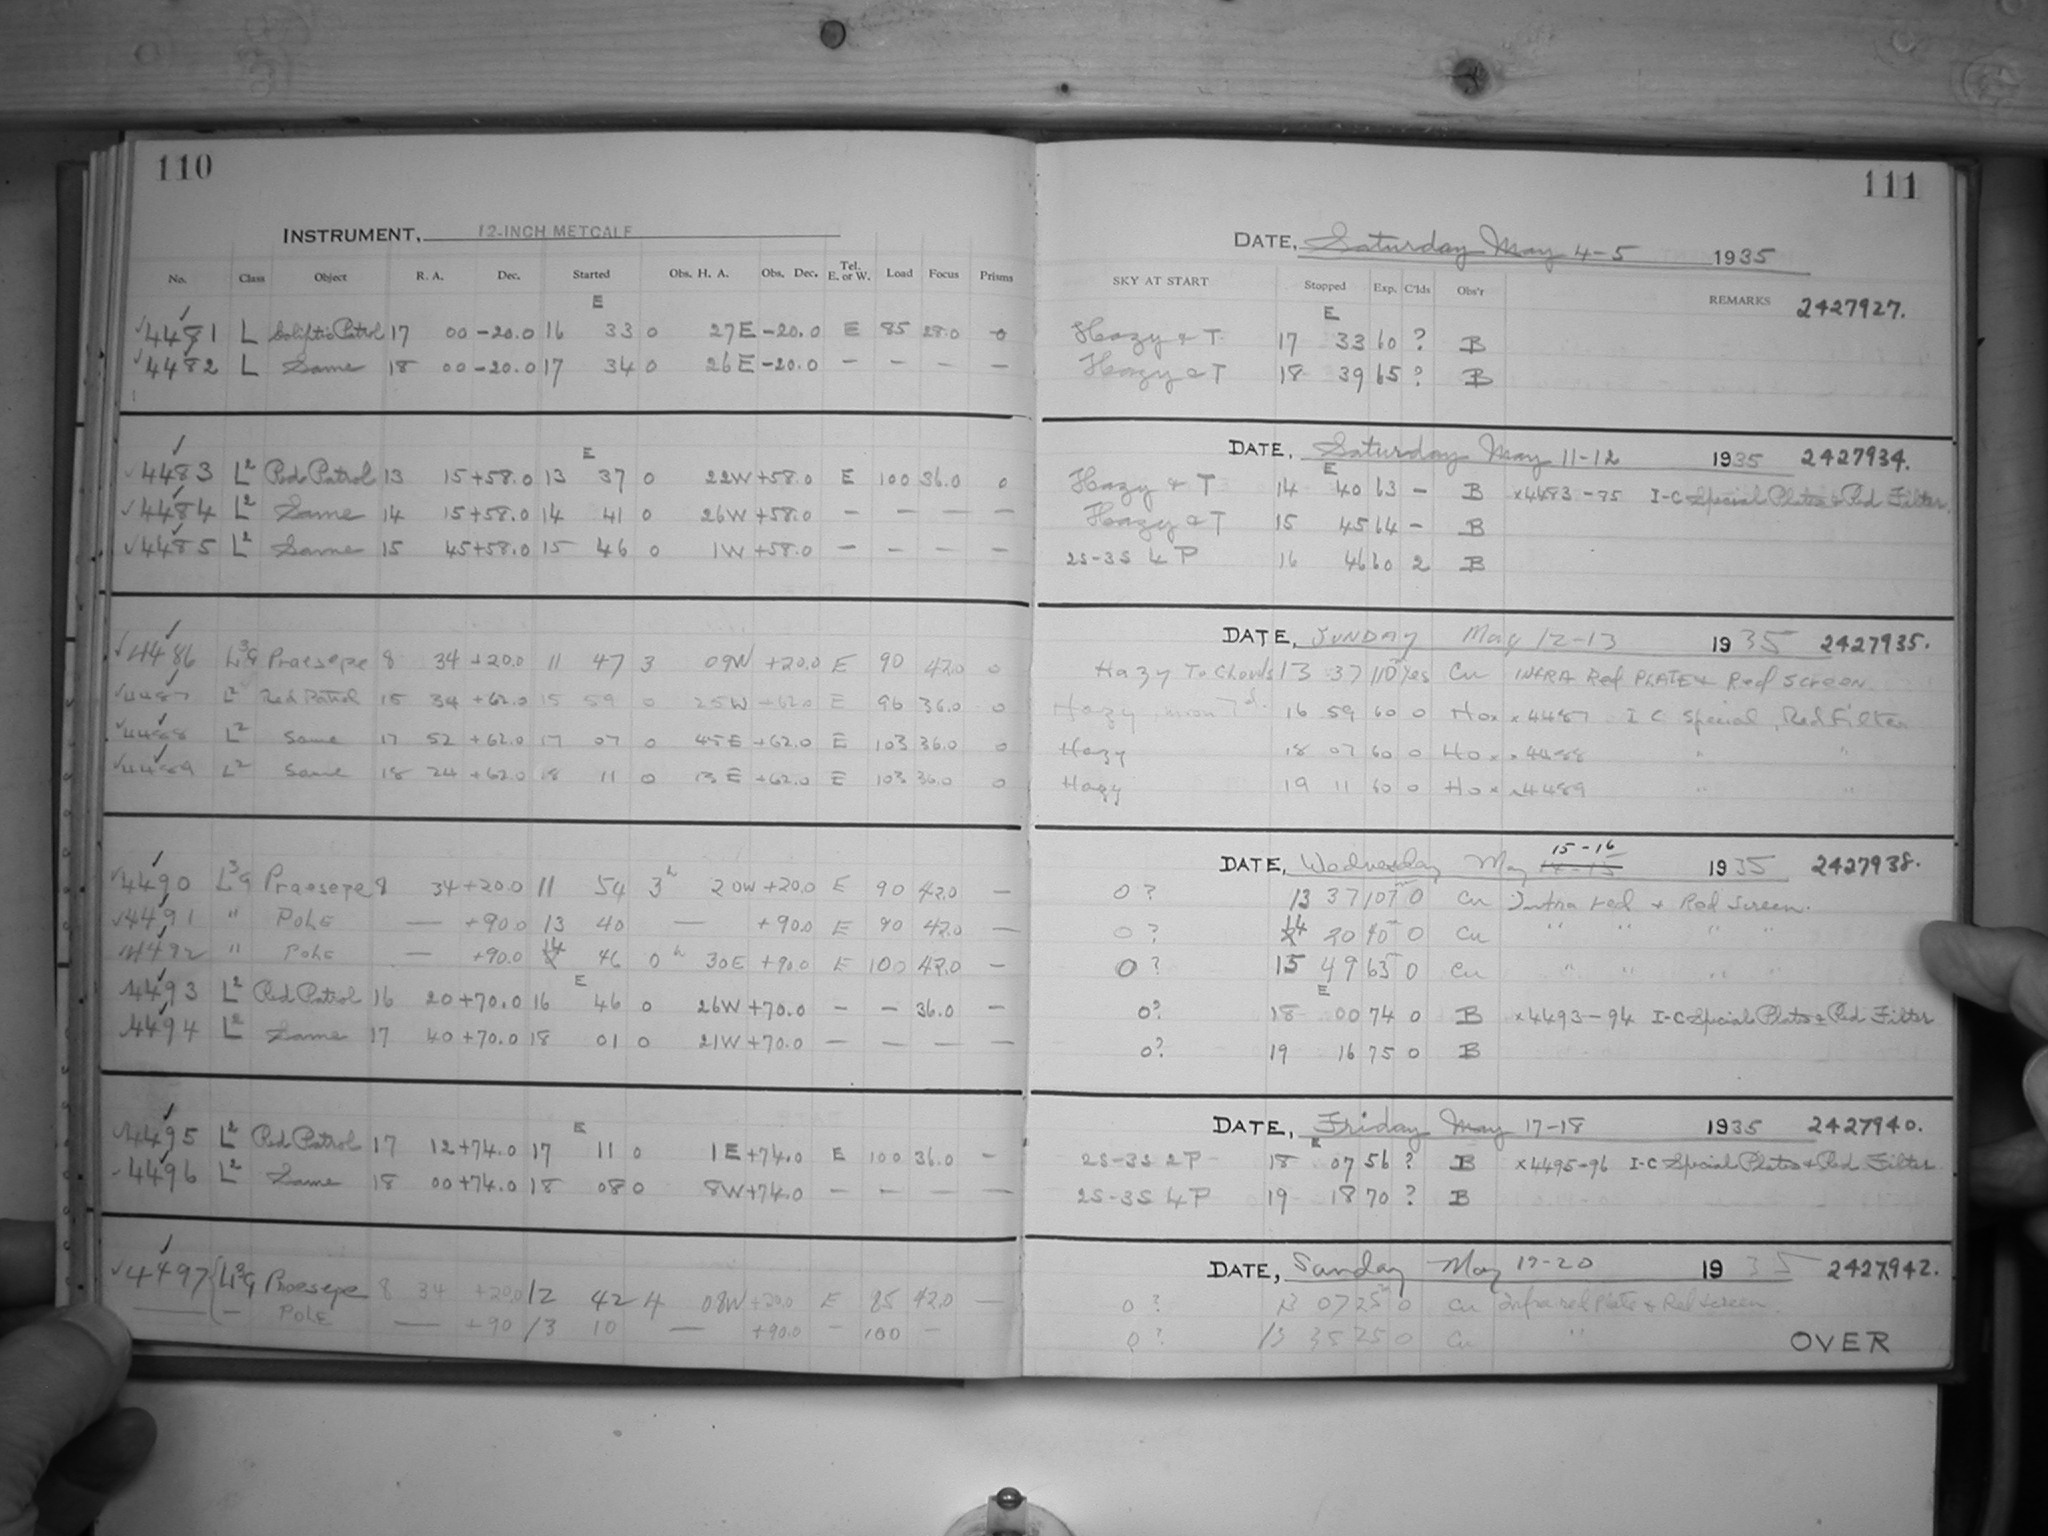 110
INSTRUMENT, 12-INCH METCALF
No. Class Object R. A. Dec. Started Obs. H. A. Obs. Dec. Tel. E. or W. Load Focus Prisms
E
4481 L Ecliptic Patrol 17 00 -20.0 16 33 0 27E -20.0 E 85 28.0 0
4482 L Same 18 00 -20.0 17 34 0 26E -20.0 — — — —
E
4483 L2 Red Patrol 13 15 +58.0 13 37 0 22W +58.0 E 100 36.0 0
4484 L2 Same 14 15 +58.0 14 41 0 26W +58.0 — — — —
4485 L2 Same 15 45 +58.0 15 46 0 1W +58.0 — — — —
4486 L3G Praesepe 8 34 +20.0 11 47 3 09W +20.0 E 90 42.0 0
4487 L2 Red Patrol 15 34 +62.0 15 59 0 25W +62.0 E 96 36.0 0
4488 L2 Same 17 52 +62.0 17 07 0 45E +62.0 E 103 36.0 0
4489 L2 Same 18 24 +62.0 18 11 0 13E +62.0 E 103 36.0 0
4490 L3G Praesepe 8 34 +20.0 11 54 3h 20W +20.0 E 90 42.0 —
4491 " POLE — +90.0 13 40 — +90.0 E 90 42.0 —
4492 " POLE — +90.0 14 46 0h 30E +90.0 E 100 42.0 —
E
4493 L2 Red Patrol 16 20 +70.0 16 46 0 26W +70.0 — — 36.0 —
4494 L2 Same 17 40 +70.0 18 01 0 21W +70.0 — — — —
E
4495 L2 Red Patrol 17 12 +74.0 17 11 0 1E +74.0 E 100 36.0 —
4496 L2 Same 18 00 +74.0 18 08 0 8W +74.0 — — — —
4497 L3G Praesepe 8 34 +20.0 12 42 4 08W +20.0 E 85 42.0 —
— — POLE — +90 13 10 — +90.0 — 100 —
111
DATE, Saturday May 4-5 1935
SKY AT START Stopped Exp. C'lds Obs'r REMARKS 2427927.
E
Hazy & T 17 33 60 ? B
Hazy & T 18 39 65 ? B
DATE, Saturday May 11-12 1935 2427934.
E
Hazy & T 14 40 63 — B x4483-85 I-C Special Plates & Red Filter.
Hazy & T 15 45 64 — B
2S-3S 4 P 16 46 60 2 B
DATE, SUNDAY May 12-13 1935 2427935.
Hazy To Clouds 13 37 110m Yes Cu INFRA Red PLATE & Red Screen
Hazy 16 59 60 0 Ho x x4487 I C Special, Red Filter
Hazy 18 07 60 0 Ho x x4488 " "
Hazy 19 11 60 0 Ho x x4489 " "
DATE, Wednesday May 14-15 15-16 1935 2427938.
0? 13 37 107m 0 Cu Infra red & Red Screen.
0? 14 20 40 0 Cu " " " "
0? 15 49 63 0 Cu " " " "
E
0? 18 00 74 0 B x4493-94 I-C Special Plates & Red Filter
0? 19 16 75 0 B
DATE, Friday May 17-18 1935 2427940.
E
2S-3S 2P 18 07 56 ? B x4495-96 I-C Special Plates & Red Filter
2S-3S 4P 19 18 70 ? B
DATE, Sunday May 19-20 1935 2427942.
0? 13 07 25m 0 Cu Infra red Plate & Red Screen.
0? 13 35 25 0 Cu "
OVER